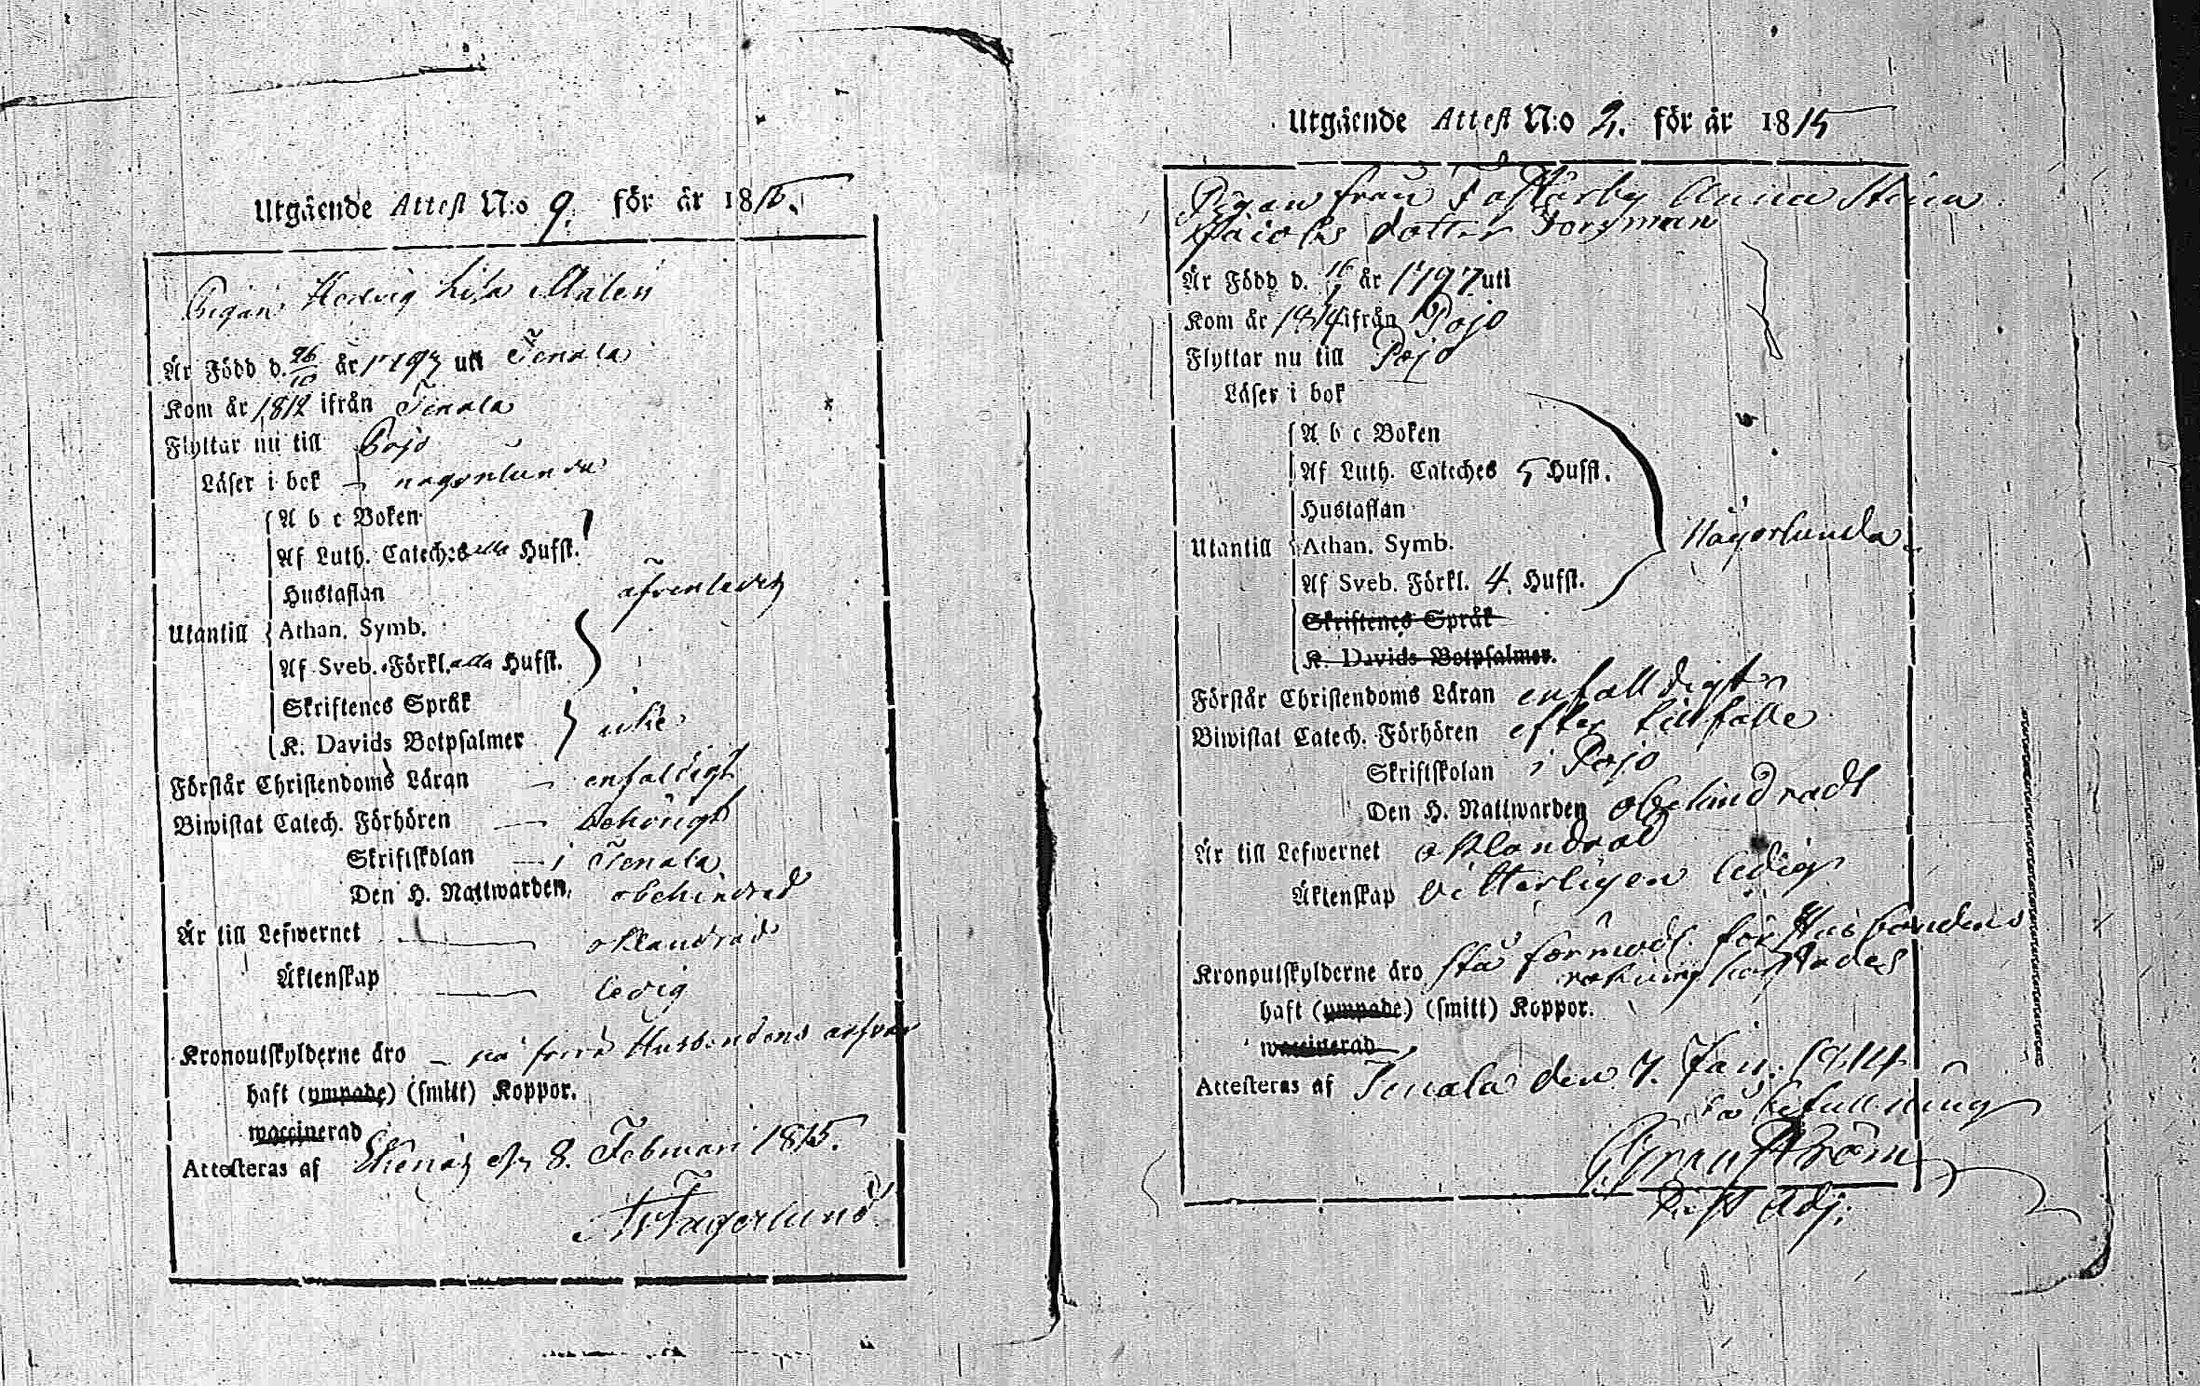 Utgående Attest N:o 9. för år 1815.
Pigan Hedvig Lisa Malen
Är Född d. 26/10 år 1797 uti Tenala
Kom år 1812 ifrån Tenala
Flyttar nu till Pojo
Läser i bok — någorlunda
Utantill
A b c Boken
Af Luth. Cateches alla Hufst.
Hustaflan
Athan. Symb.
Af Sveb. Förkl. alla Hufst.
afvenledes
Skriftenes Språk
K. Davids Botpsalmer
icke
Förstår Christendoms Läran — enfaldigt
Biwistat Catech. Förhören — behörigt
Skriftskolan — i Tenala
Den H. Nattwarden, obehindrad
Är till Lefwernet — oklandrad
Äktenskap — ledig
Kronoutskylderne äro — på förra Husbondens ansvar
haft (ympade) (smitt) Koppor.
waccinerad
Attesteras af Ekenäs d. 8. Februari 1815.
Fagerlund
Utgående Attest N:o 2. för år 1815
Pigan från Anna Stina
Jacobs dotter Forsman
Är Född d. 16 år 1797 uti
Kom år 1814 ifrån Pojo
Flyttar nu till Pojo
Läser i bok
Utantill
A b c Boken
Af Luth. Cateches 5 Hufst.
Hustaflan
Athan. Symb.
Af Sveb. Förkl. 4 Hufst.
Någorlunda
Skriftenes Språk
K. Davids Botpsalmer.
Förstår Christendoms Läran enfalldigt
Biwistat Catech. Förhören efter tillfälle
Skriftskolan i Pojo
Den H. Nattwarden obehindradt
Är till Lefwernet oklandrad
Äktenskap vitterligen ledig
Kronoutskylderne äro stå förmodl. för Husbondens
räkning
haft (ympade) (smitt) Koppor.
waccinerad
Attesteras af Tenala den 7. Jan. 1814
På befallning
Granström
Past. Adj.